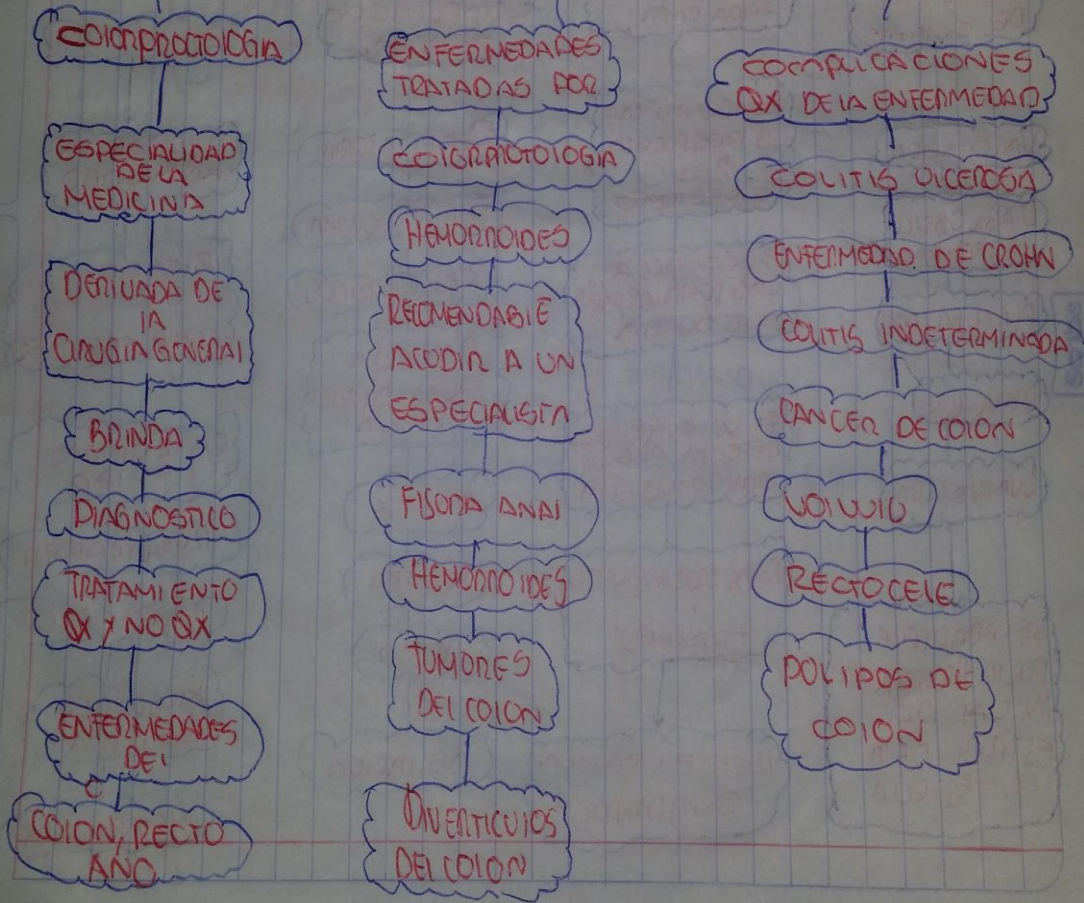 COLOPROCTOLOGIA
ESPECIALIDAD
DE LA
MEDICINA
DERIVADA DE
LA
CIRUGIA GENERAL
BRINDA
DIAGNOSTICO
TRATAMIENTO
QX Y NO QX
ENFERMEDADES
DEL
C
COLON, RECTO
ANO
ENFERMEDADES
TRATADAS POR
COLOPROCTOLOGIA
HEMORROIDES
RECOMENDABLE
ACUDIR A UN
ESPECIALISTA
FISURA ANAL
HEMORROIDES
TUMORES
DEL COLON
DIVERTICULOS
DEL COLON
COMPLICACIONES
QX DE LA ENFERMEDAD
COLITIS ULCEROSA
ENFERMEDAD DE CROHN
COLITIS INDETERMINADA
CANCER DE COLON
VOLVULO
RECTOCELE
POLIPOS DE
COLON